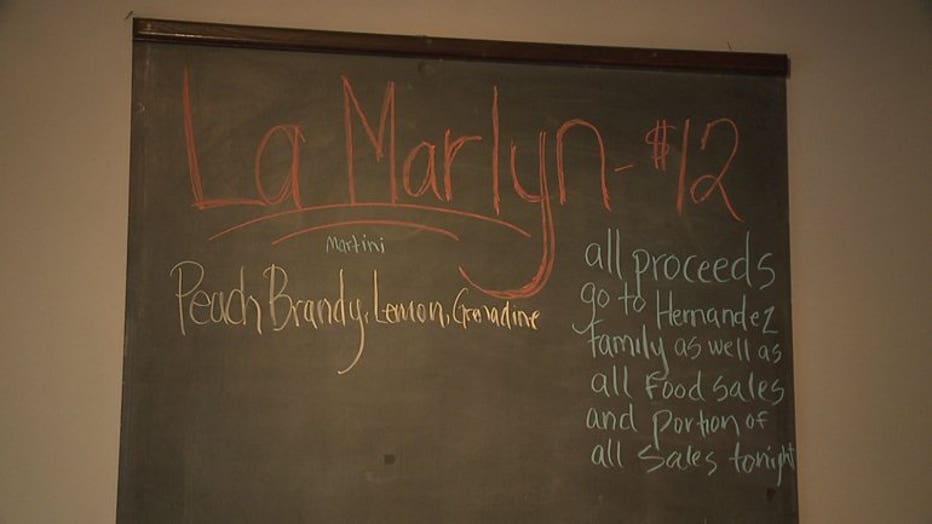 La Marlyn - $12
Martini
Peach Brandy, Lemon, Grenadine
all proceeds
go to Hernandez
family as well as
all food sales
and portion of
all sales tonight